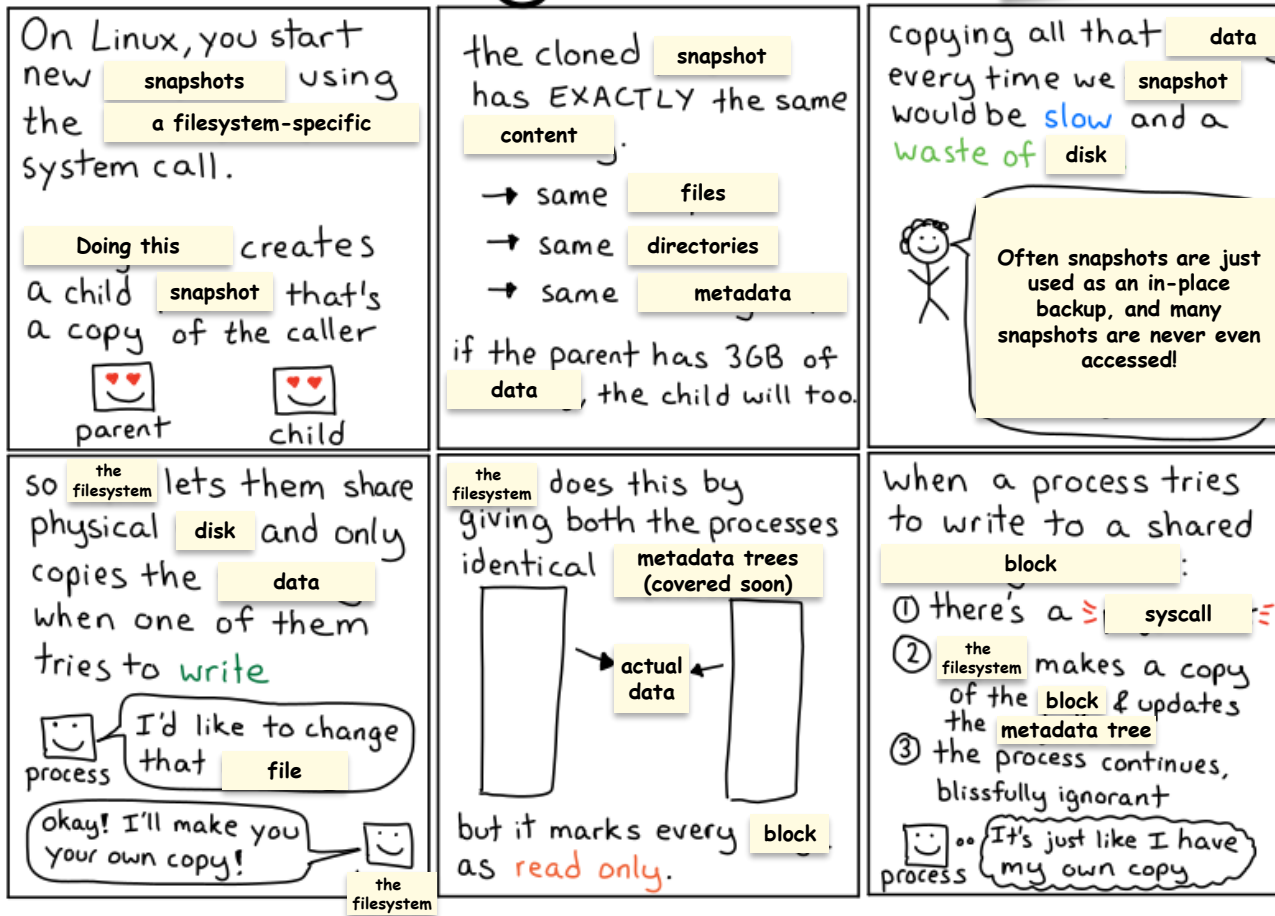 On Linux, you start
new snapshots using
the a filesystem-specific
system call.
Doing this creates
a child snapshot that's
a copy of the caller
parent child
the cloned snapshot
has EXACTLY the same
content
→ same files
→ same directories
→ same metadata
if the parent has 3GB of
data, the child will too.
copying all that data
every time we snapshot
would be slow and a
waste of disk
Often snapshots are just
used as an in-place
backup, and many
snapshots are never even
accessed!
so the filesystem lets them share
physical disk and only
copies the data
when one of them
tries to write
I'd like to change
that file
process
okay! I'll make you
your own copy!
the
filesystem
the filesystem does this by
giving both the processes
identical metadata trees
(covered soon)
actual
data
but it marks every block
as read only.
when a process tries
to write to a shared
block :
① there's a syscall
② the filesystem makes a copy
of the block & updates
the metadata tree
③ the process continues,
blissfully ignorant
It's just like I have
my own copy
process